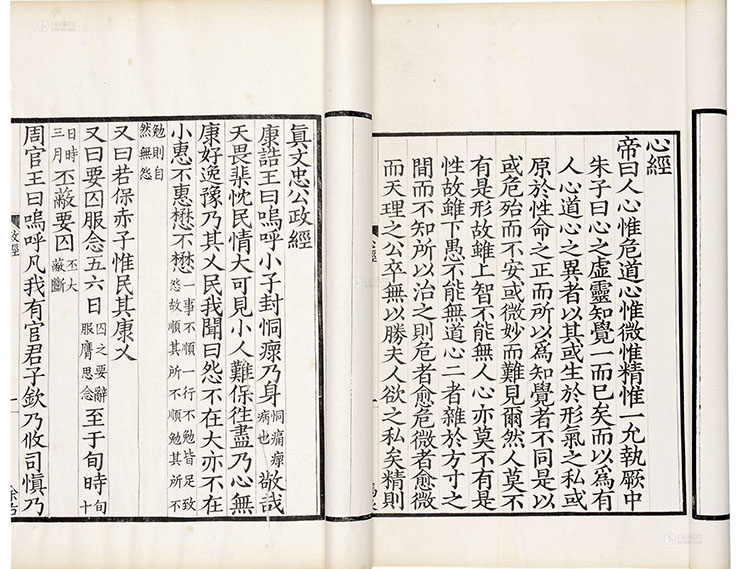 心經
帝曰人心惟危道心惟微惟精惟一允執厥中
朱子曰心之虛靈知覺一而已矣而以爲有
人心道心之異者以其或生於形氣之私或
原於性命之正而所以爲知覺者不同是以
或危殆而不安或微妙而難見爾然人莫不
有是形故雖上智不能無人心亦莫不有是
性故雖下愚不能無道心二者雜於方寸之
間而不知所以治之則危者愈危微者愈微
而天理之公卒無以勝夫人欲之私矣精則
心經
眞文忠公政經
康誥王曰嗚呼小子封恫瘝乃身恫痛瘝病也敬哉
天畏棐忱民情大可見小人難保往盡乃心無
康好逸豫乃其乂民我聞曰怨不在大亦不在
小惠不惠懋不懋一事不順一行不勉皆足致怨故順其所不順勉其所不
勉則自然無怨
又曰若保赤子惟民其康乂
又曰要囚服念五六日囚之要辭服膺思念至于旬時旬十
日時三月丕蔽要囚丕大蔽斷
周官王曰嗚呼凡我有官君子欽乃攸司愼乃
政經 一